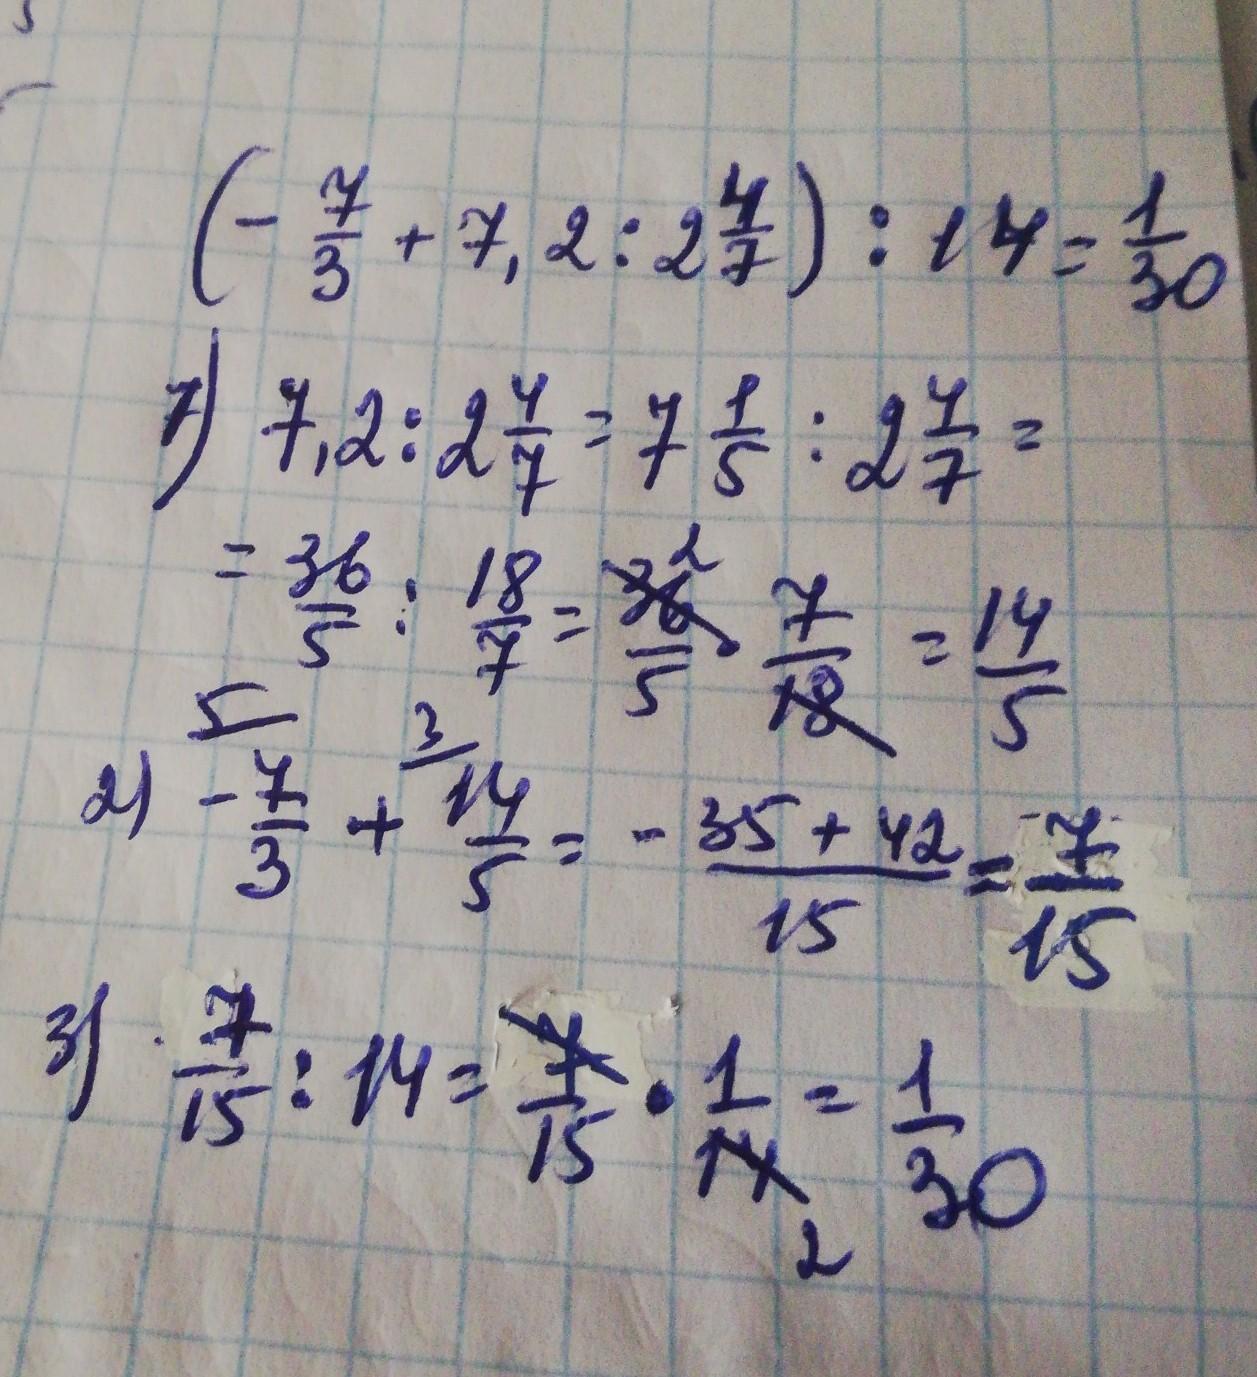 (- 7/3 + 7,2 : 2 4/7) : 14 = 1/30
1) 7,2 : 2 4/7 = 7 1/5 : 2 4/7 =
= 36/5 : 18/7 = 36/5 2 · 7/18 = 14/5
5 3
2) - 7/3 + 14/5 = - 35 + 42/15 = 7/15
3) 7/15 : 14 = 7/15 · 1/14 = 1/30
2